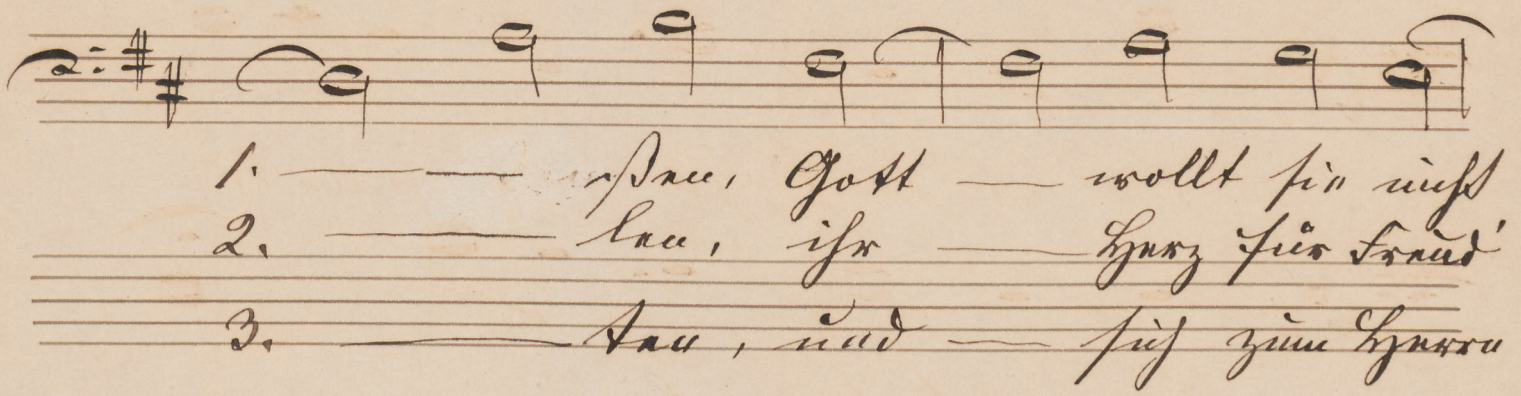 1. — — ßen, Gott — wollt sie nicht
2. — len, ihr — Herz für Freud'
3. — ten, und — sich zum Herrn